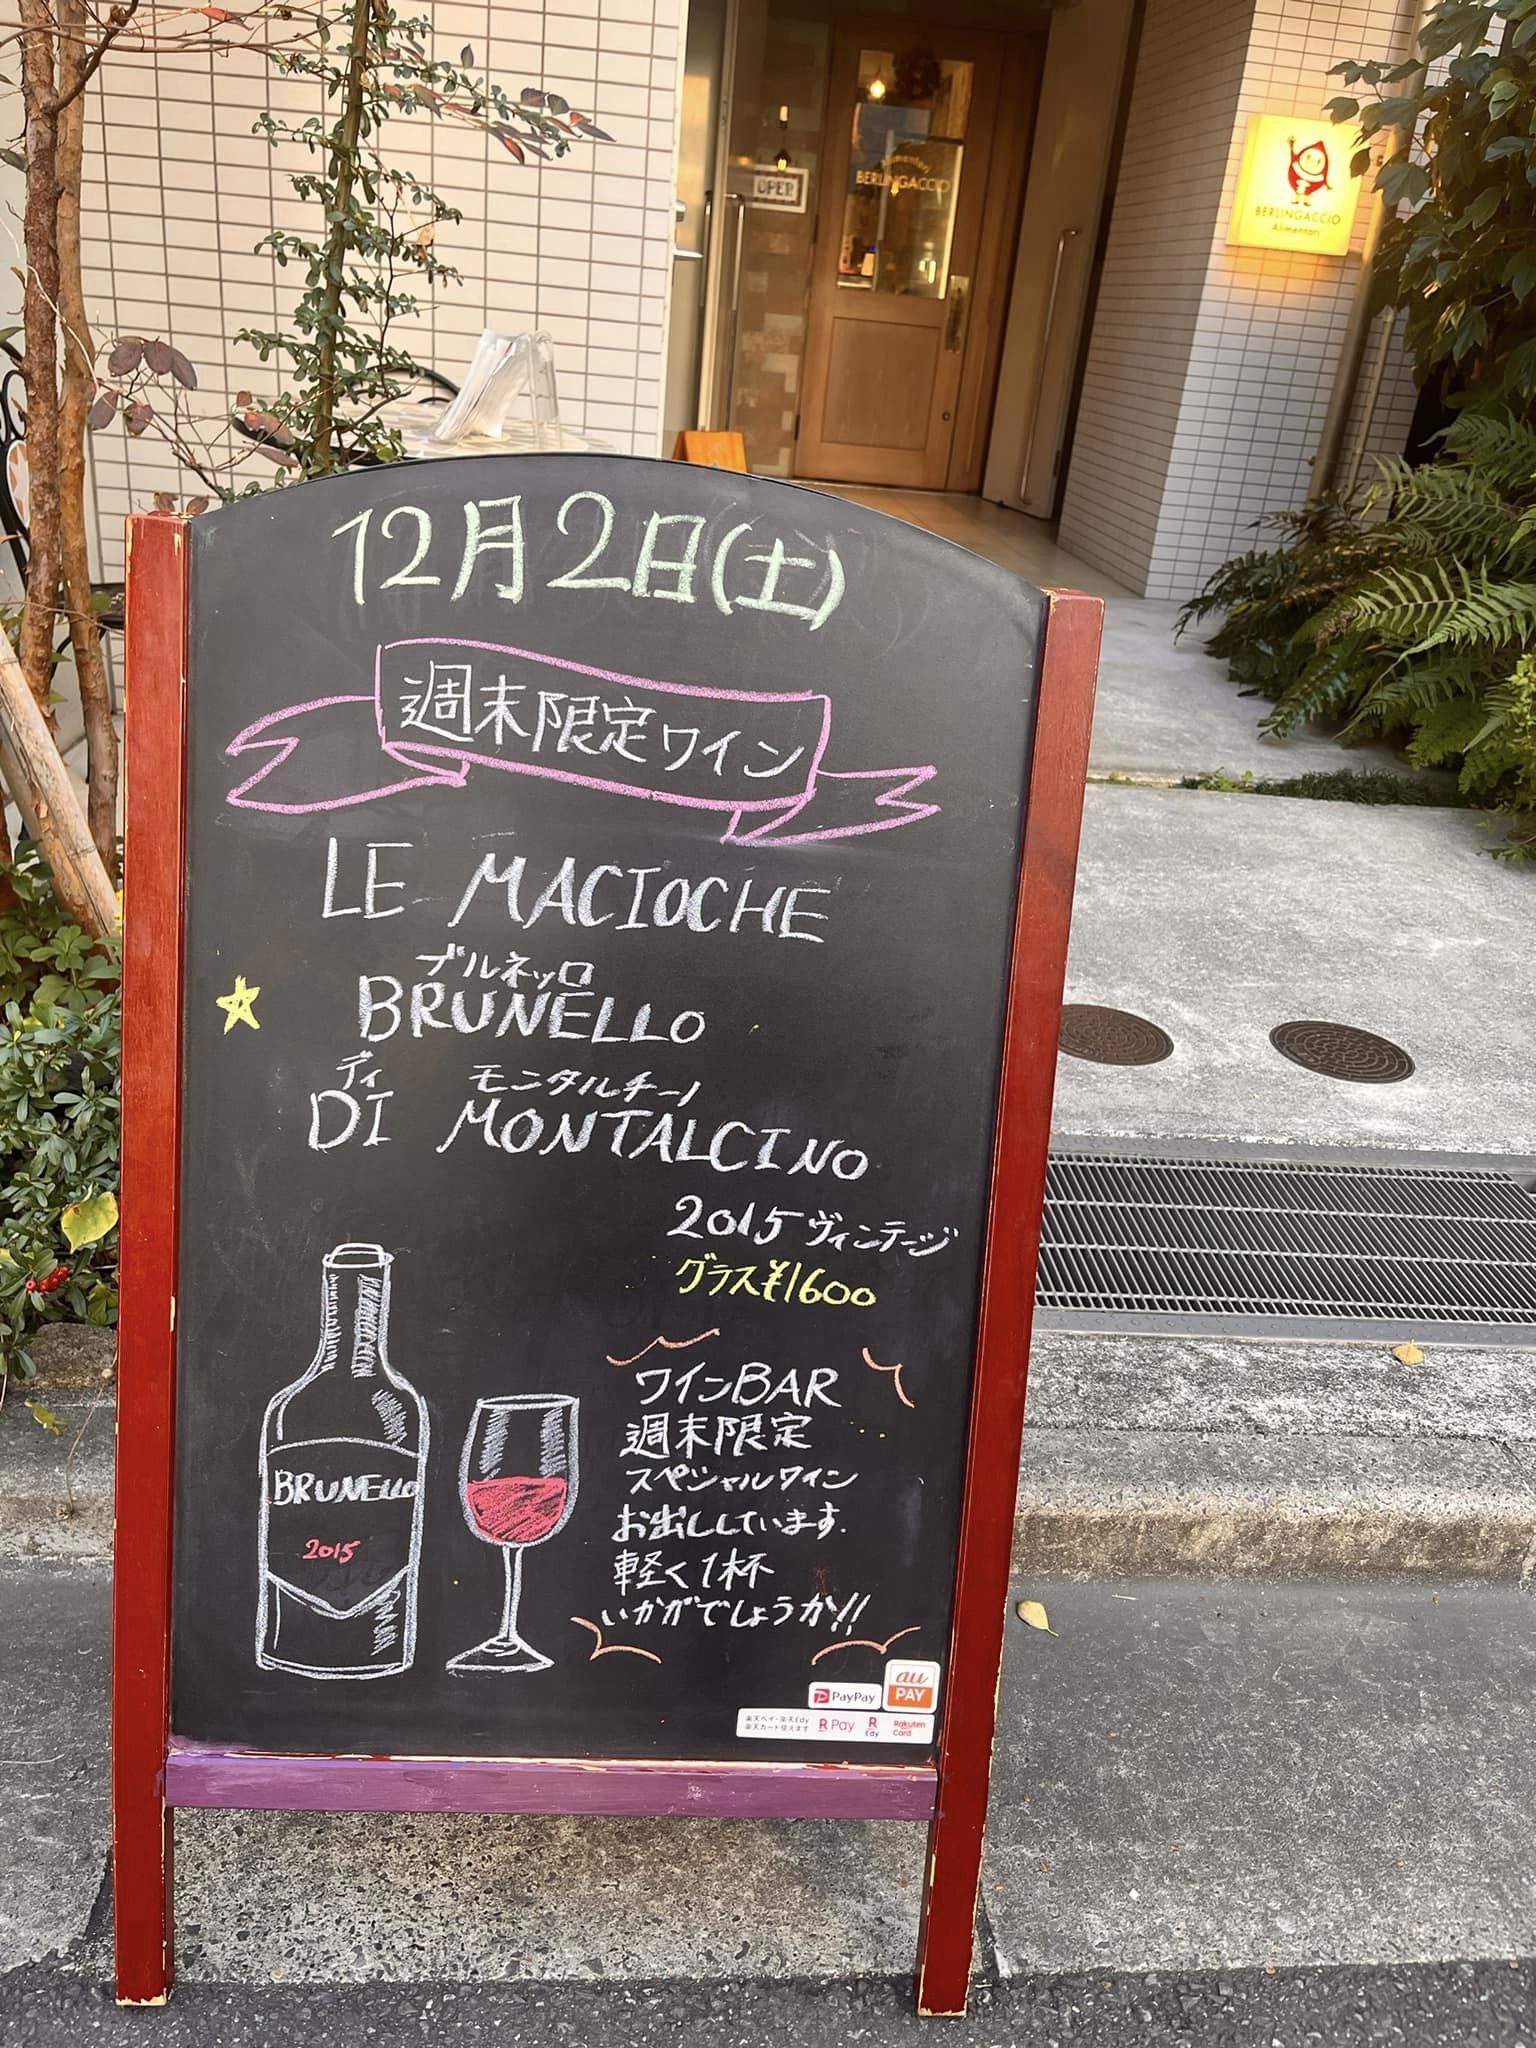 OPEN
Alimentari
BERLINGACCIO
BERLINGACCIO
Alimentari
12月2日(土)
週末限定ワイン
LE MACIOCHE
ブルネッロ
BRUNELLO
ディ モンタルチーノ
DI MONTALCINO
2015 ヴィンテージ
グラス¥1600
BRUNELLO
2015
ワインBAR
週末限定
スペシャルワイン
お出ししています.
軽く1杯
いかがでしょうか!!
PayPay
au
PAY
楽天ペイ・楽天Edy
楽天カード使えます
R Pay
R
Edy
Rakuten
Card